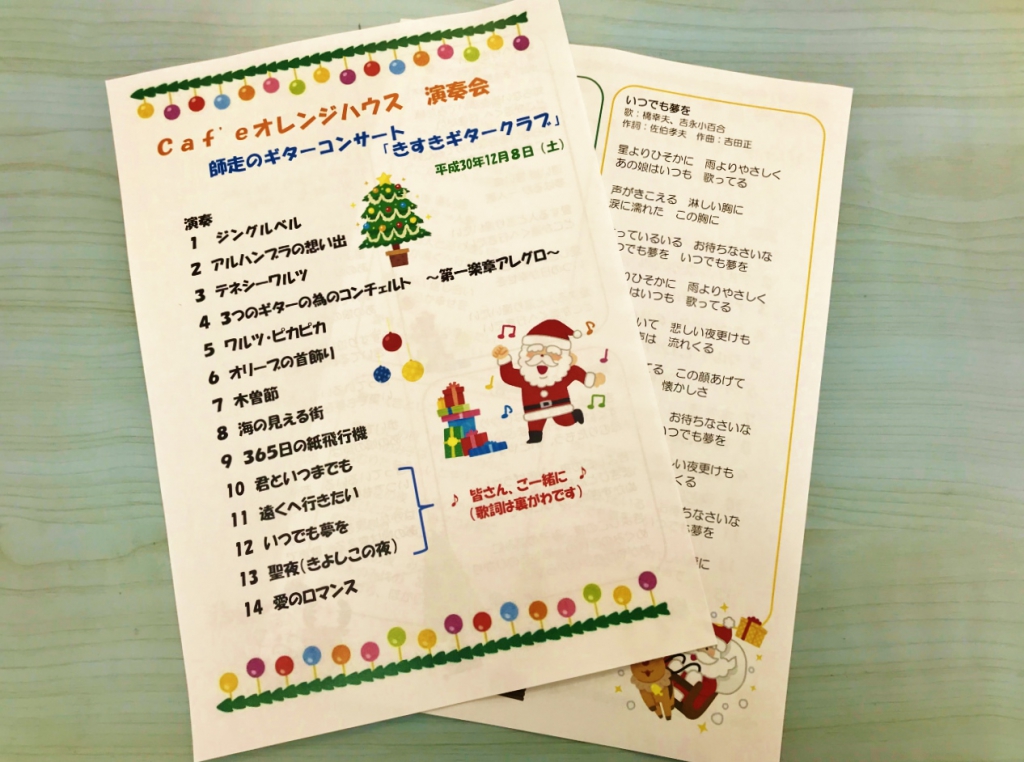 Caf'eオレンジハウス　演奏会
師走のギターコンサート
「きすきギタークラブ」
平成30年12月8日（土）
演奏
1 ジングルベル
2 アルハンブラの想い出
3 テネシーワルツ
4 3つのギターの為のコンチェルト　～第一楽章アレグロ～
5 ワルツ・ピカピカ
6 オリーブの首飾り
7 木曽節
8 海の見える街
9 365日の紙飛行機
10 君といつまでも
11 遠くへ行きたい
12 いつでも夢を
13 聖夜(きよしこの夜)
14 愛のロマンス
♪ 皆さん、ご一緒に ♪
(歌詞は裏がわです)
いつでも夢を
歌：橋幸夫、吉永小百合
作詞：佐伯孝夫　作曲：吉田正
星よりひそかに　雨よりやさしく
あの娘はいつも　歌ってる
声がきこえる　淋しい胸に
涙に濡れた　この胸に
っているいる　お待ちなさいな
つでも夢を　いつでも夢を
りひそかに　雨よりやさしく
はいつも　歌ってる
いて　悲しい夜更けも
は　流れくる
てる　この顔あげて
懐かしさ
お待ちなさいな
いつでも夢を
い夜更けも
くる
ちなさいな
夢を
に